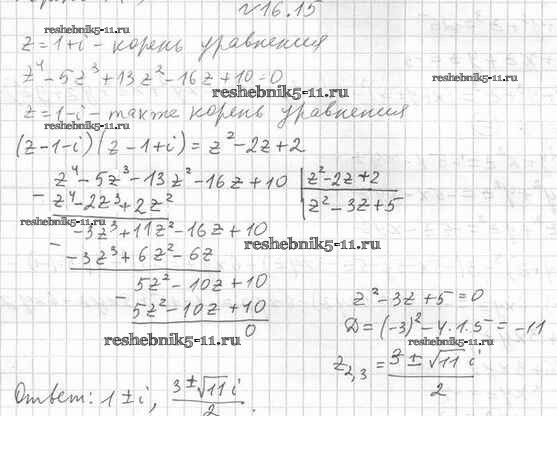 №16.15
reshebnik5-11.ru
z=1+i - корень уравнения
z⁴-5z³+13z²-16z+10=0
reshebnik5-11.ru
reshebnik5-11.ru
z=1-i - также корень уравнения
reshebnik5-11.ru
(z-1-i)(z-1+i)=z²-2z+2
z⁴-5z³-13z²-16z+10 | z²-2z+2
- z⁴-2z³+2z² | z²-3z+5
reshebnik5-11.ru
-3z³+11z²-16z+10
- -3z³+6z²-6z
reshebnik5-11.ru
5z²-10z+10
- 5z²-10z+10
0
reshebnik5-11.ru
z²-3z+5=0
D=(-3)²-4·1·5=-11
reshebnik5-11.ru
z₂,₃=(3±√11 i)/2
Ответ: 1±i, (3±√11 i)/2.